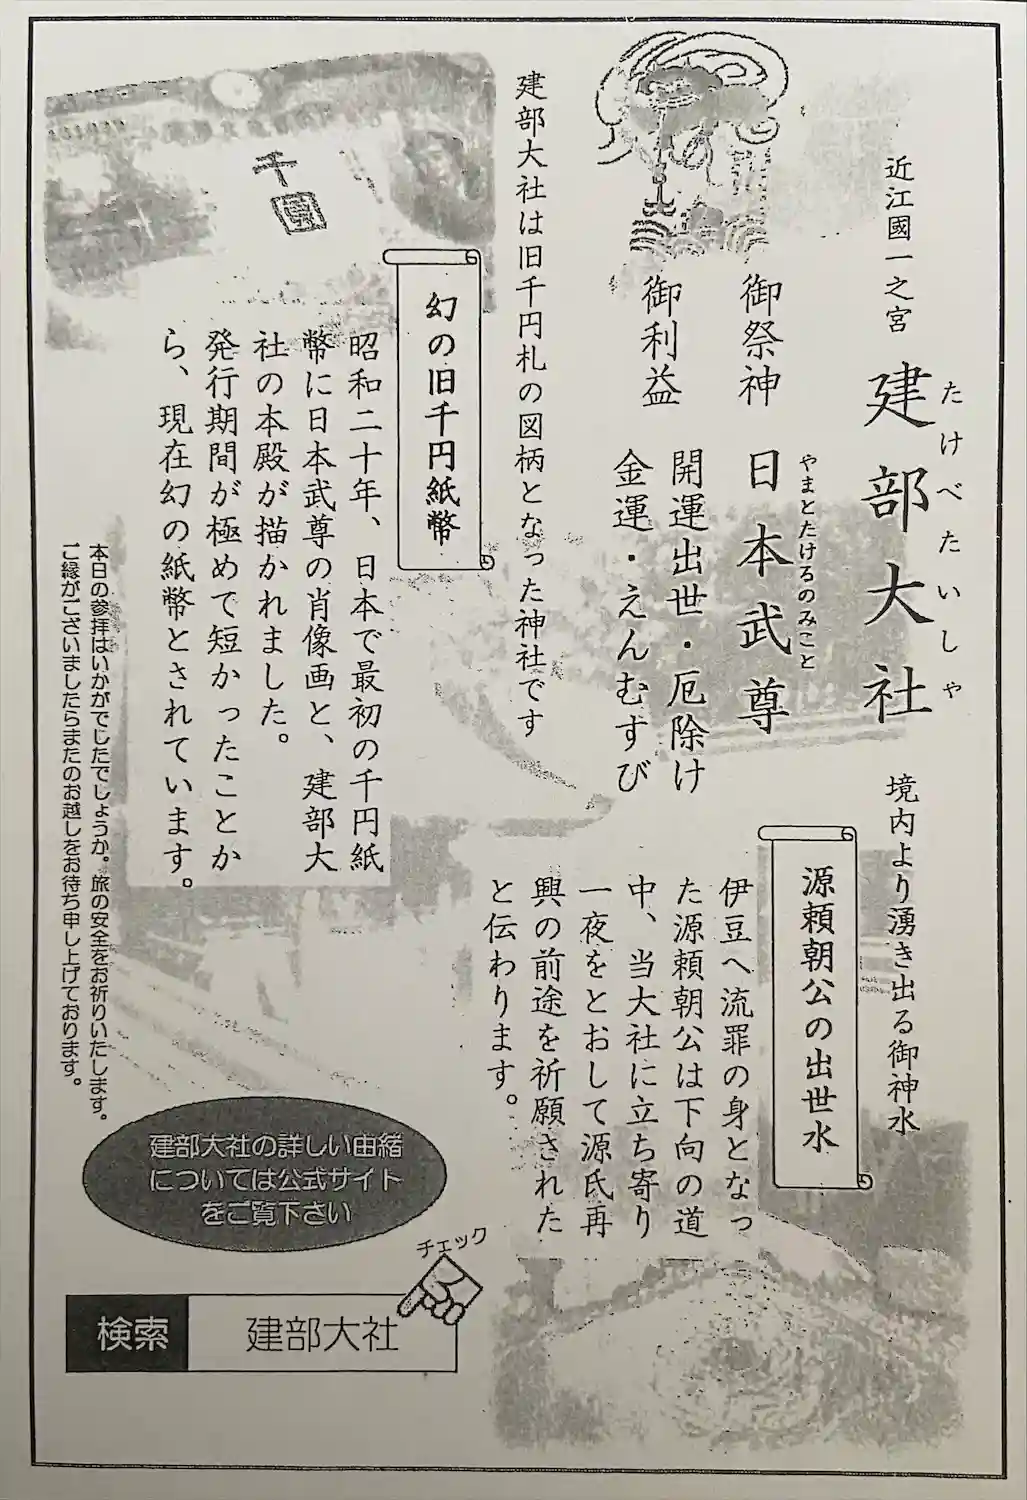 近江國一之宮 建部大社
たけべたいしゃ
御祭神 日本武尊
やまとたけるのみこと
御利益 開運出世・厄除け
金運・えんむすび
建部大社は旧千円札の図柄となった神社です
千
圓
幻の旧千円紙幣
昭和二十年、日本で最初の千円紙
幣に日本武尊の肖像画と、建部大
社の本殿が描かれました。
発行期間が極めて短かったことか
ら、現在幻の紙幣とされています。
境内より湧き出る御神水
源頼朝公の出世水
伊豆へ流罪の身となっ
た源頼朝公は下向の道
中、当大社に立ち寄り
一夜をとおして源氏再
興の前途を祈願された
と伝わります。
本日の参拝はいかがでしたでしょうか。旅の安全をお祈りいたします。
ご縁がございましたらまたのお越しをお待ち申し上げております。
建部大社の詳しい由緒
については公式サイト
をご覧下さい
チェック
検索 建部大社